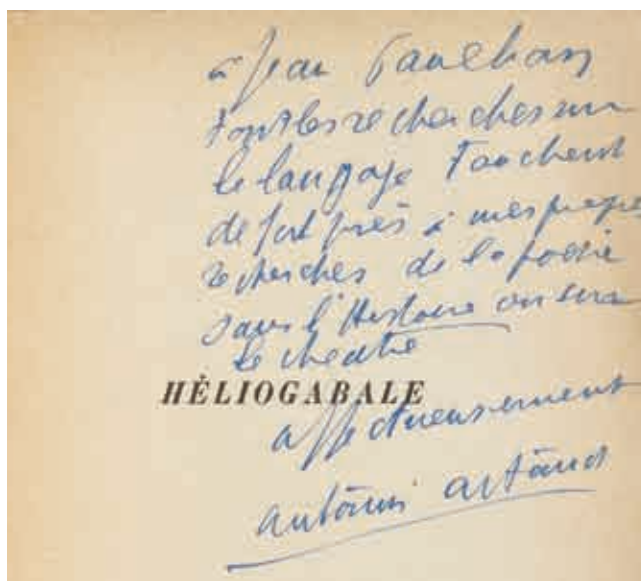 à Jean Paulhan
dont les recherches sur
le langage touchent
de fort près à mes propres
recherches de la poésie
dans l'Histoire ou sur
le théâtre
HÉLIOGABALE
affectueusement
Antonin Artaud